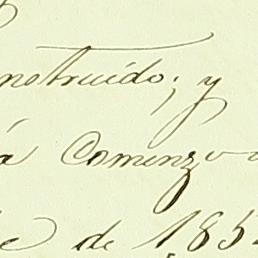 nstruido; y
á comenzo
de 185